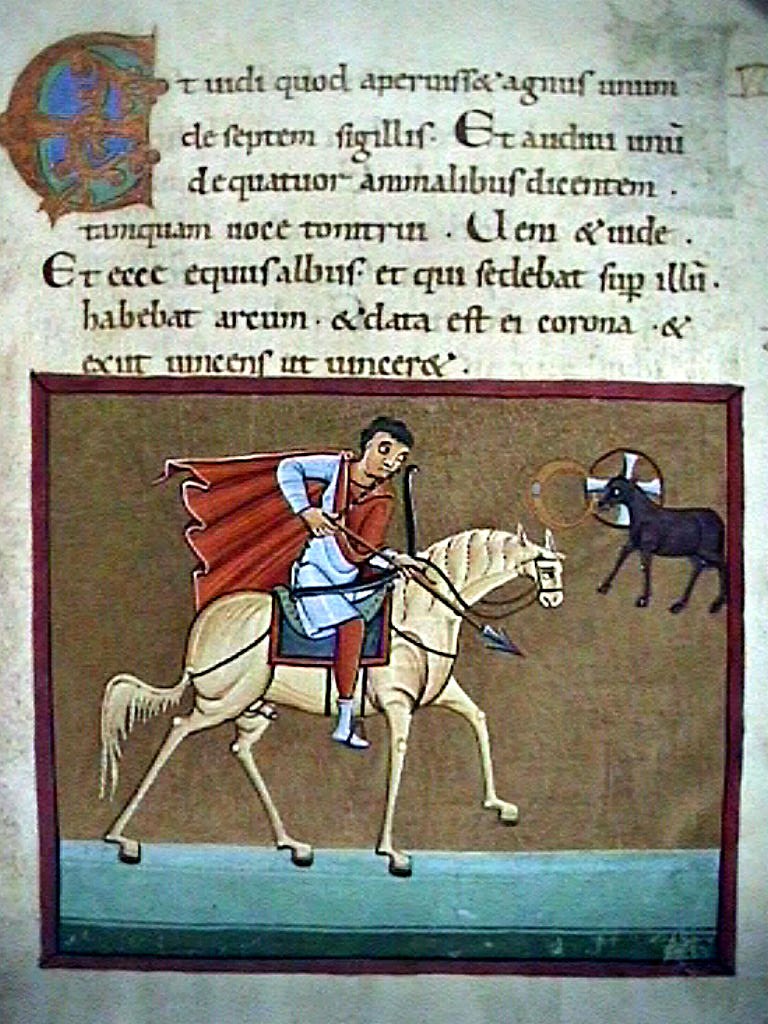 Et uidi quod aperuiss& agnus unum
de septem sigillis. Et audiui unū
de quatuor animalibus dicentem.
tamquam uoce tonitrui. Ueni & uide.
Et ecce equus albus. et qui sedebat sup illū.
habebat arcum. & data est ei corona. &
exiit uincens ut uincer&.